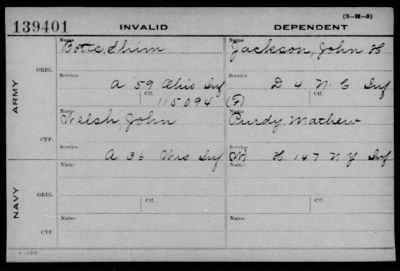 139401 INVALID DEPENDENT (3-M-5)
Name Name
Jackson, John H
ORIG. Service Service
A 59 Ohio Inf D 4 N. C Inf
Ctf. 115094 Ctf. (F)
ARMY
Name Name
Welsh, John Purdy, Mathew
CTF. Service Service
A 36 Wis Inf H 147 N Y Inf
Name Name
ORIG. Service Service
Ctf. Ctf.
NAVY
Name Name
CTF. Service Service